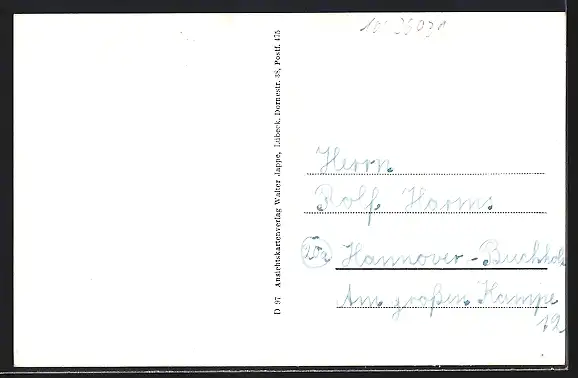 D 97 Ansichtskartenverlag Walter Jappe, Lübeck, Dornestr. 38, Postf. 175
Herrn
Rolf Harms
Hannover-Buchholz
Am großen Kampe
12